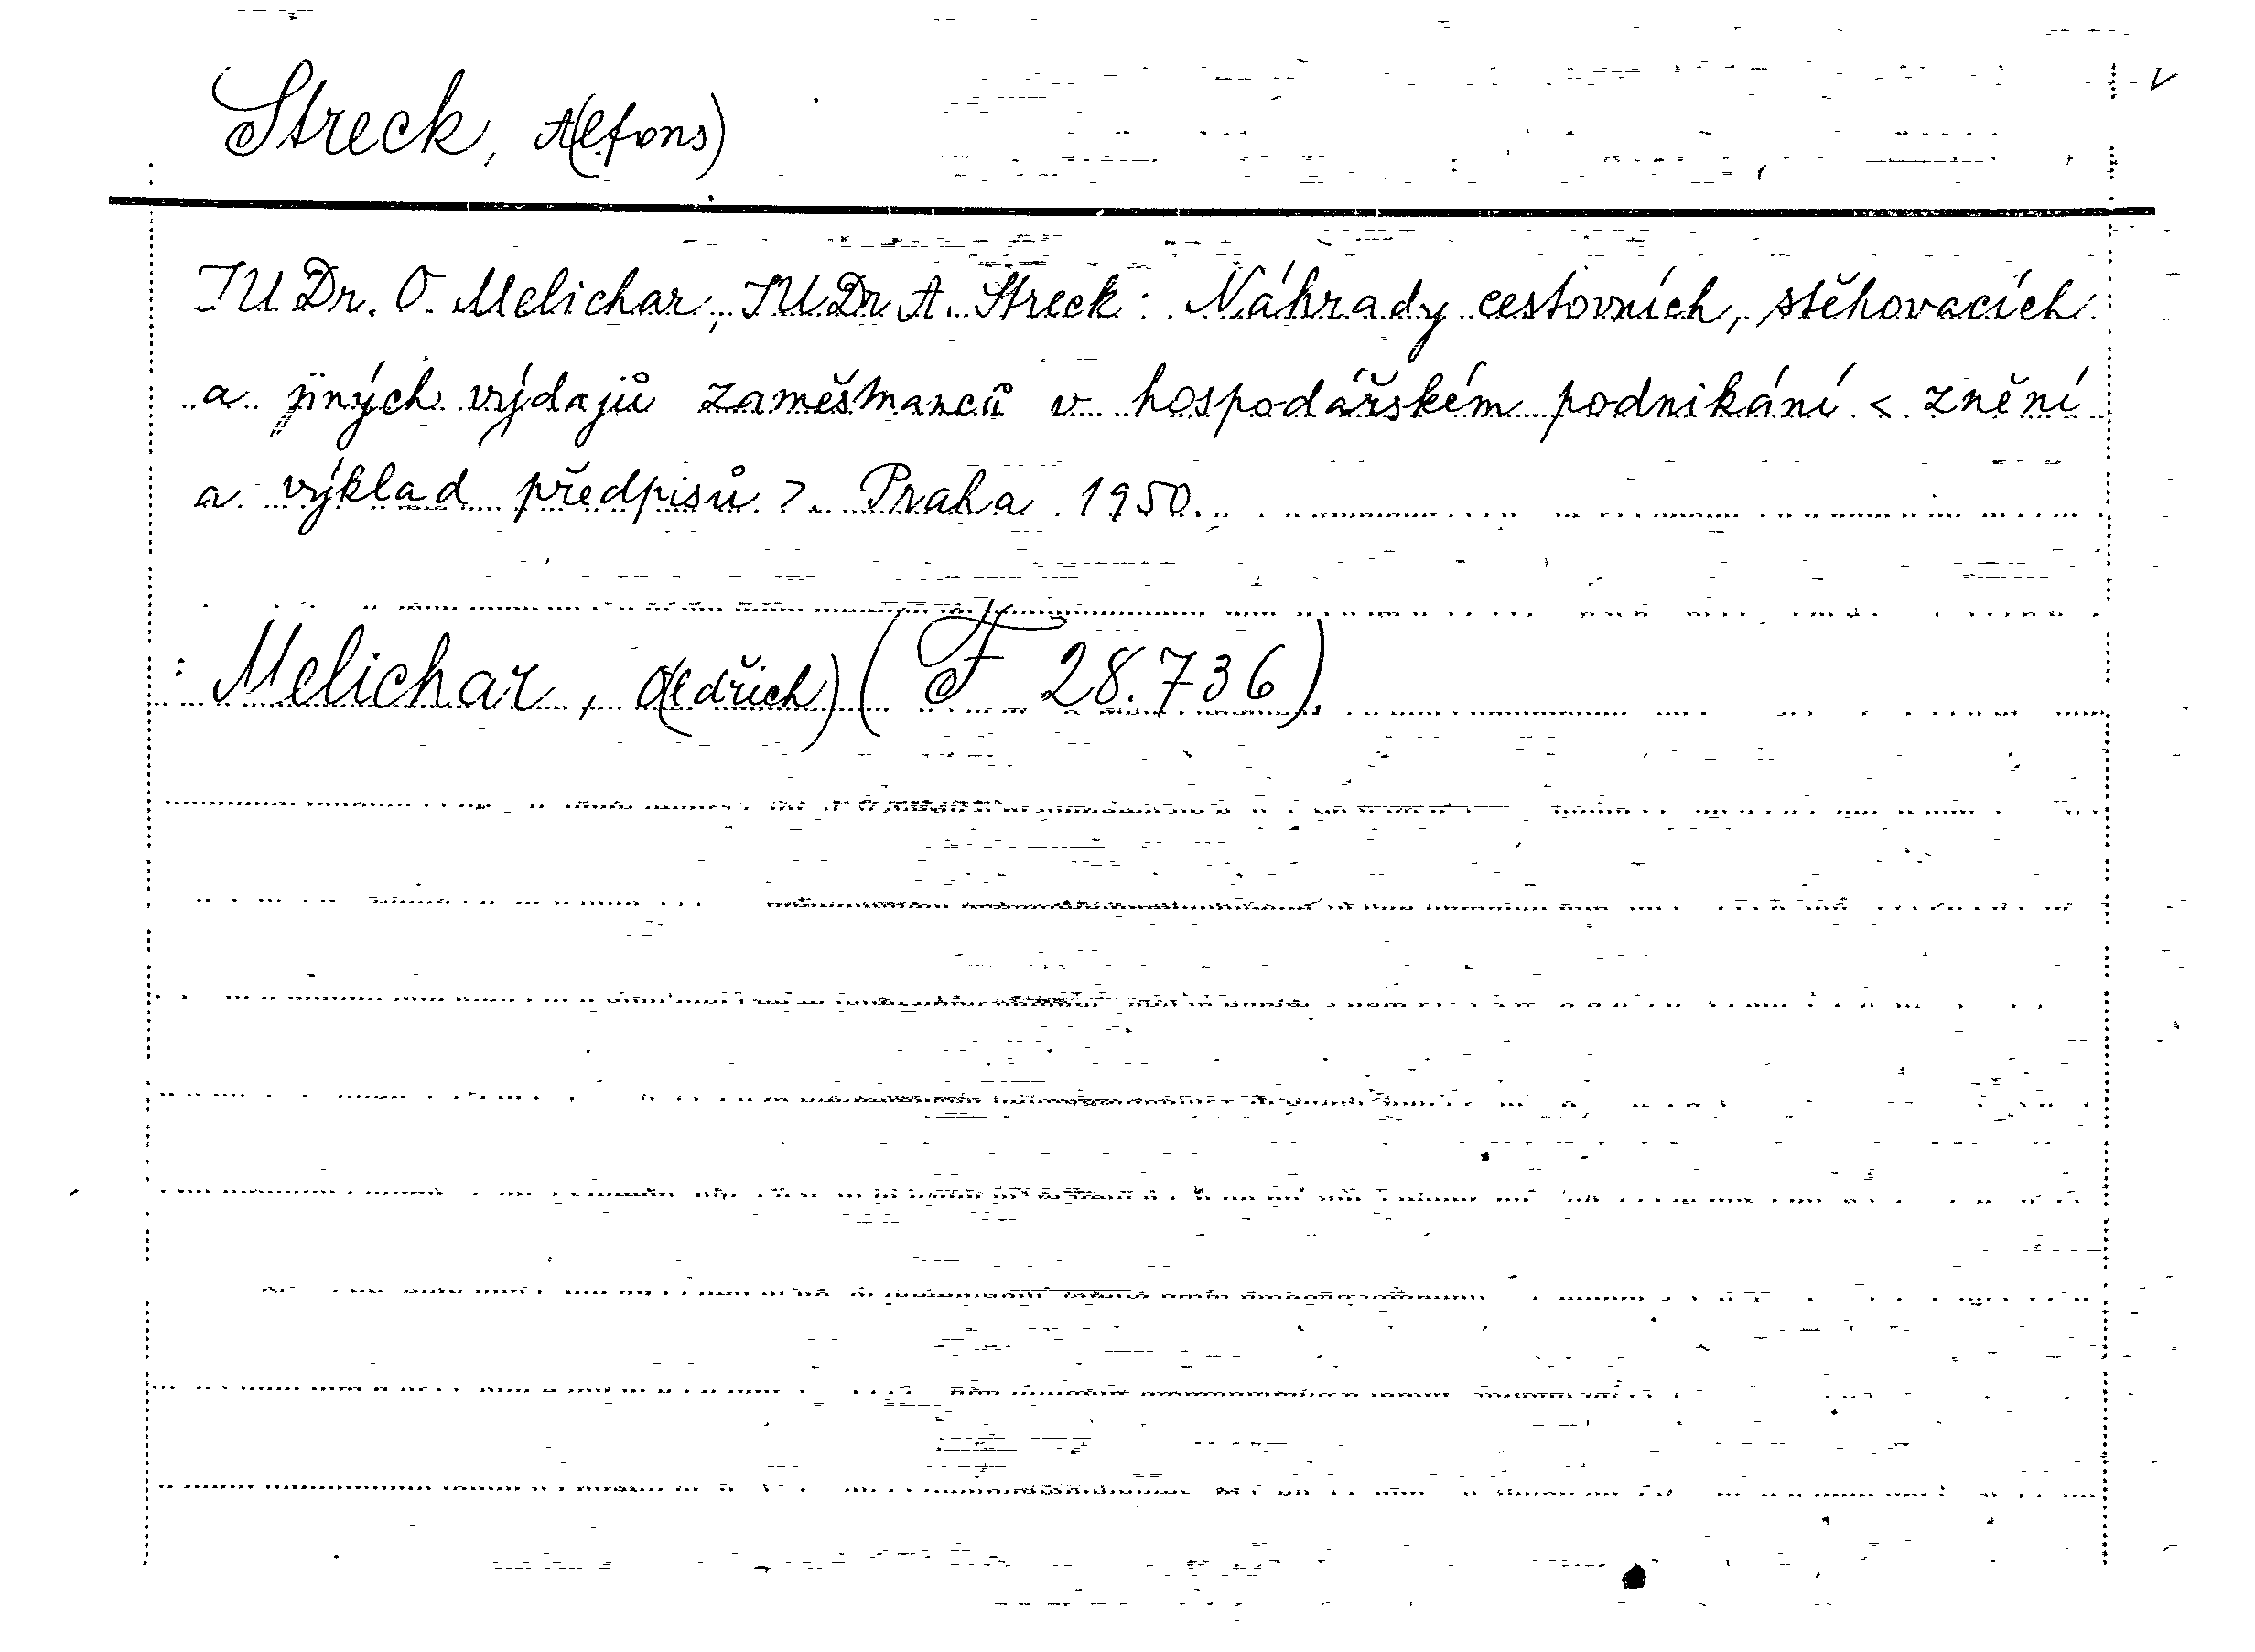 Streck, A(lfons)
JUDr. O. Melichar, JUDr A. Streck: Náhrady cestovních, stěhovacích
a jiných výdajů zaměstnanců v hospodářském podnikání < znění
a výklad předpisů >. Praha 1950.
: Melichar, O(ldřich) (F 28.736).